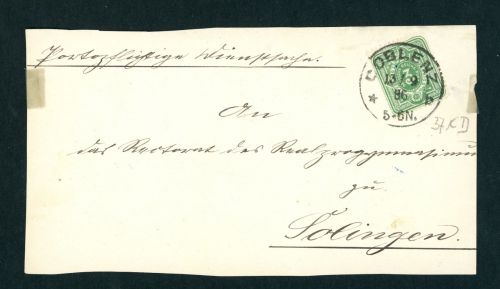 Portopflichtige Dienstsache.
COBLENZ
13 9
86
* b
5-6N.
37KD
An
das Rectorat des Realprogymnasium
zu
Solingen.